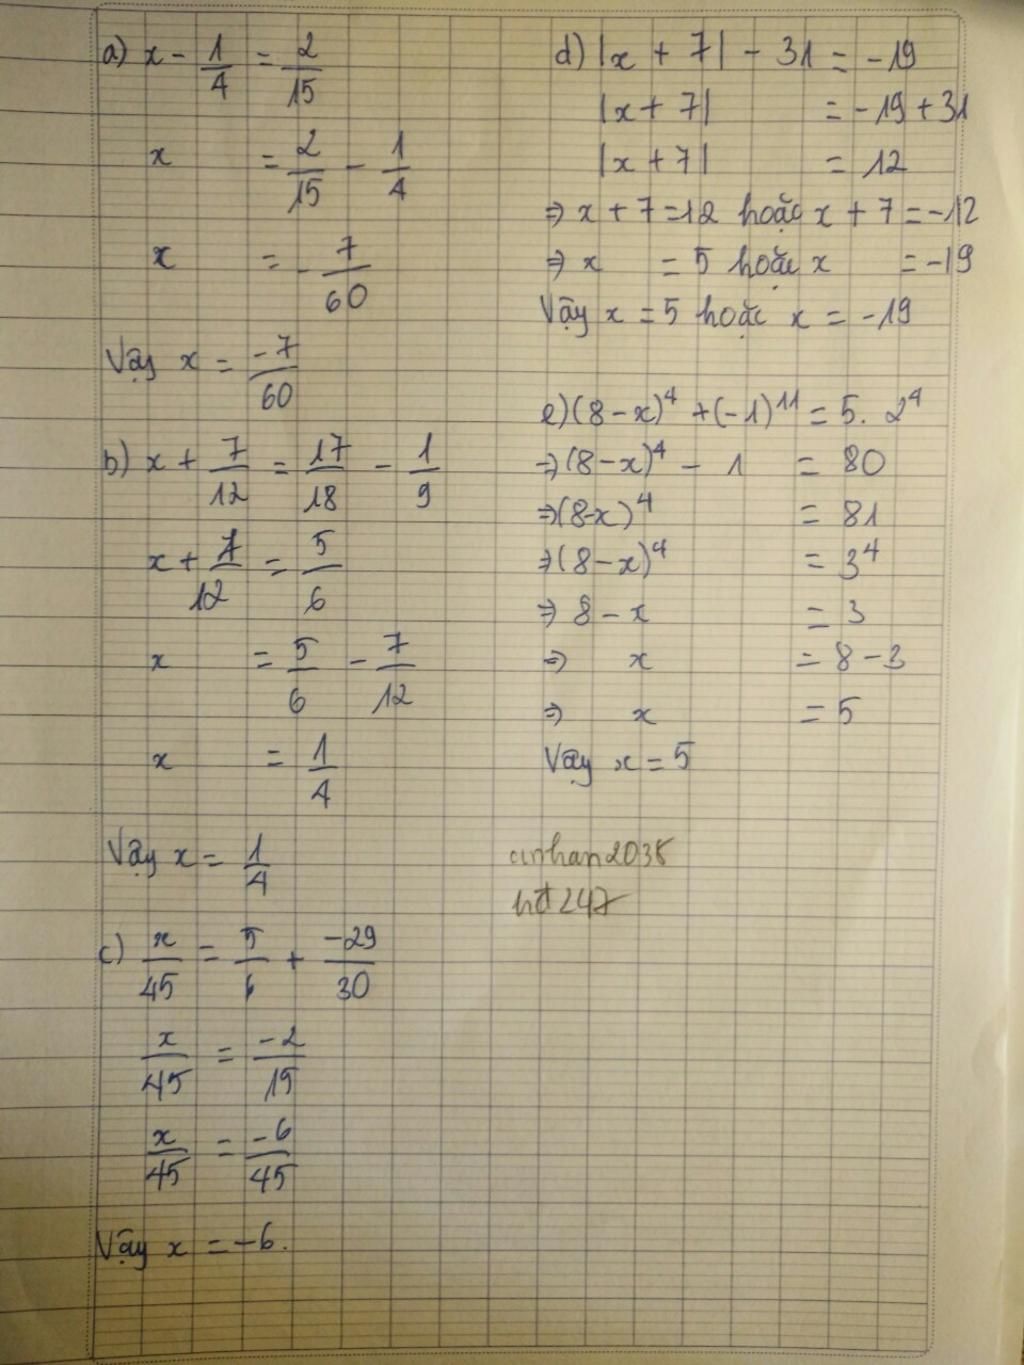 a) x - 1/4 = 2/15
x = 2/15 - 1/4
x = - 7/60
Vậy x = -7/60
b) x + 7/12 = 17/18 - 1/9
x + 7/12 = 5/6
x = 5/6 - 7/12
x = 1/4
Vậy x = 1/4
c) x/45 = 5/6 + -29/30
x/45 = -2/15
x/45 = -6/45
Vậy x = -6.
d) |x + 7| - 31 = -19
|x + 7| = -19 + 31
|x + 7| = 12
⇒ x + 7 = 12 hoặc x + 7 = -12
⇒ x = 5 hoặc x = -19
Vậy x = 5 hoặc x = -19
e) (8 - x)⁴ + (-1)¹¹ = 5. 2⁴
⇒ (8 - x)⁴ - 1 = 80
⇒ (8-x)⁴ = 81
⇒ (8 - x)⁴ = 3⁴
⇒ 8 - x = 3
⇒ x = 8 - 3
⇒ x = 5
Vậy x = 5